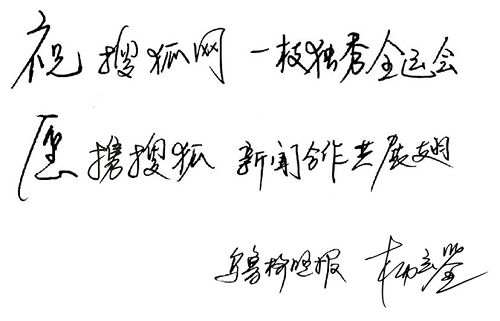 祝搜狐网 一枝独秀全运会
愿携搜狐 新闻合作共展翅
乌鲁 晚报 杨